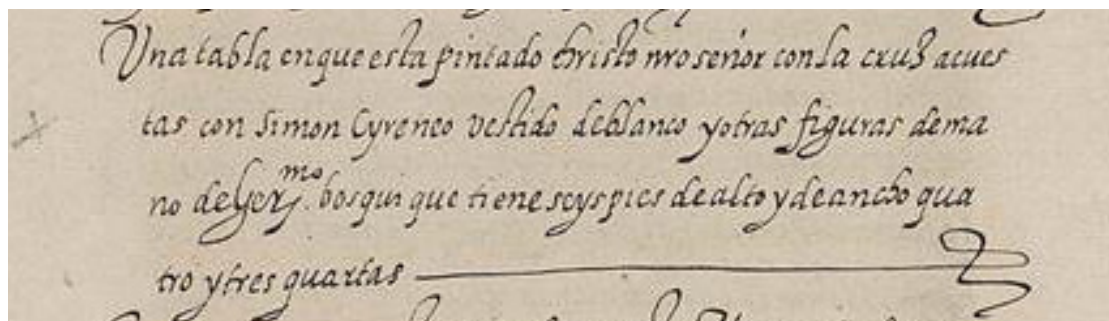 Una tabla en que esta pintado christo nro señor con la cruz acues
tas con Simon Cyreneo vestido de blanco y otras figuras de ma
no de Germo. bosqui que tiene seys pies de alto y de ancho qua
tro y tres quartas